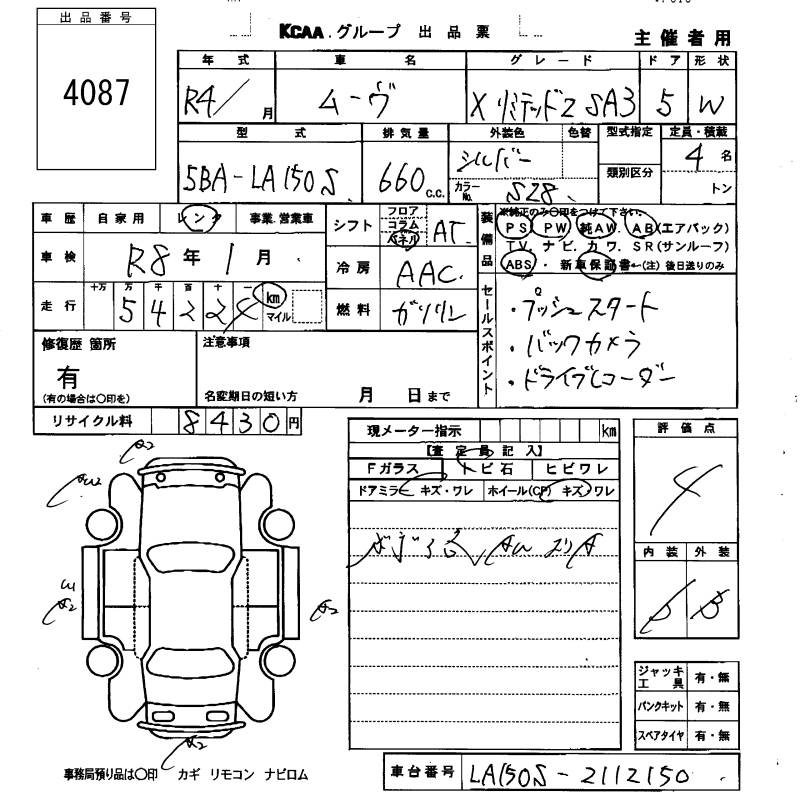 出品番号
4087
KCAA.グループ 出品票
主催者用
年式 車名 グレード ドア 形状
R4/ 月 ムーヴ X リミテッド2 SA3 5 W
型式 排気量 外装色 色替 型式指定 定員・積載
類別区分
5BA-LA150S 660 c.c. シルバー 4名
カラーNo. S28 トン
車歴 自家用 レンタ 事業.営業車
シフト フロア コラム パネル AT
装備品 ※純正のみ○印をつけて下さい。
PS PW 純AW. AB(エアバック)
TV. ナビ. カワ. SR(サンルーフ)
ABS・新車保証書←(注) 後日送りのみ
車検 R8年1月
冷房 AAC
走行 十万 万 千 百 十 一
54224 km マイル
燃料 ガソリン
セールスポイント
・プッシュスタート
・バックカメラ
・ドライブレコーダー
修復歴 箇所
有
(有の場合は○印を)
注意事項
名変期日の短い方 月 日まで
リサイクル料 8430円
現メーター指示 km
【査定員記入】
Fガラス トビ石 ヒビワレ
ドアミラー キズ・ワレ ホイール(CP) キズ/ワレ
評価点
4
内装 外装
B B
A2
AW
W1
A2
A2
A2
ジャッキ工具 有・無
パンクキット 有・無
スペアタイヤ 有・無
事務局預り品は○印 カギ リモコン ナビロム
車台番号 LA150S-2112150